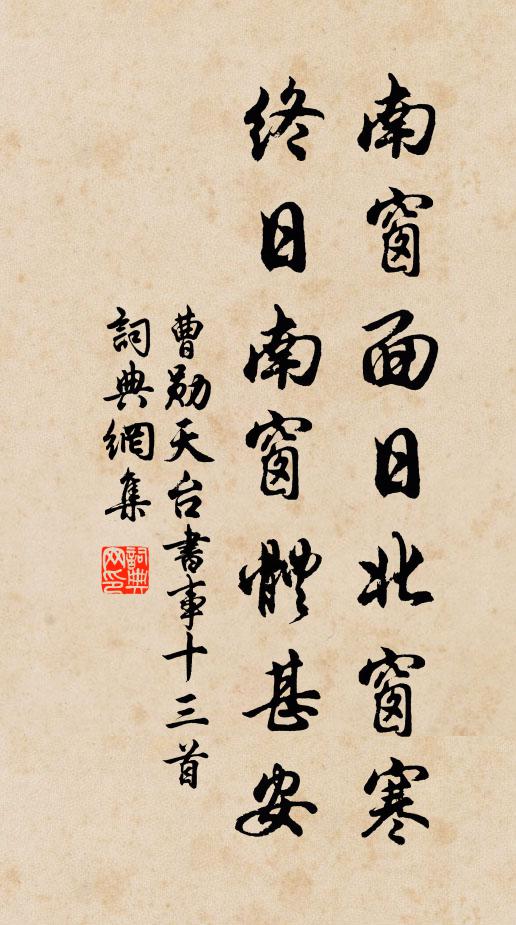 南窗面日北窗寒
終日南窗體甚安
曹勛天台書事十三首
詞典網集
詞典網印